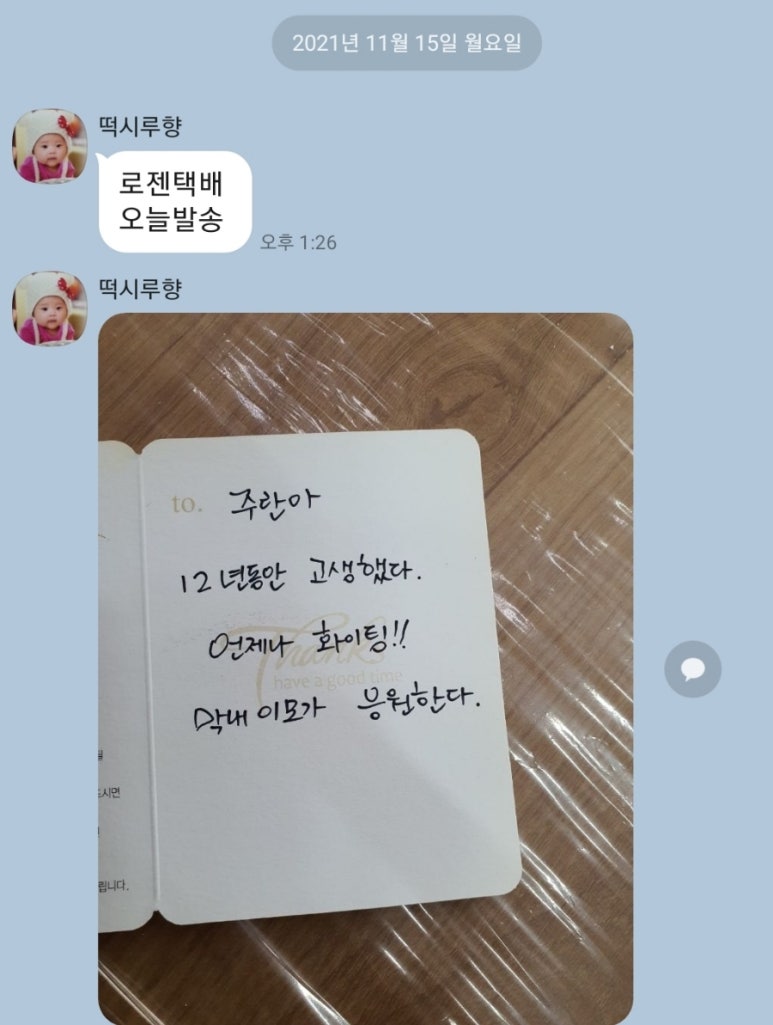 2021년 11월 15일 월요일
떡시루향
로젠택배
오늘발송
오후 1:26
떡시루향
to. 주란아
12년동안 고생했다.
언제나 화이팅!!
Thanks
have a good time
막내 이모가 응원한다.
드시면
립니다.